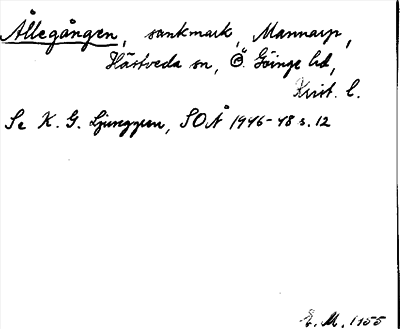 Ållegången, sankmark, Mannarp,
Hästveda sn, Ö. Göinge hd,
Krist. l.
Se K. G. Ljunggren, SOÅ 1946-48 s. 12
E. M. 1955